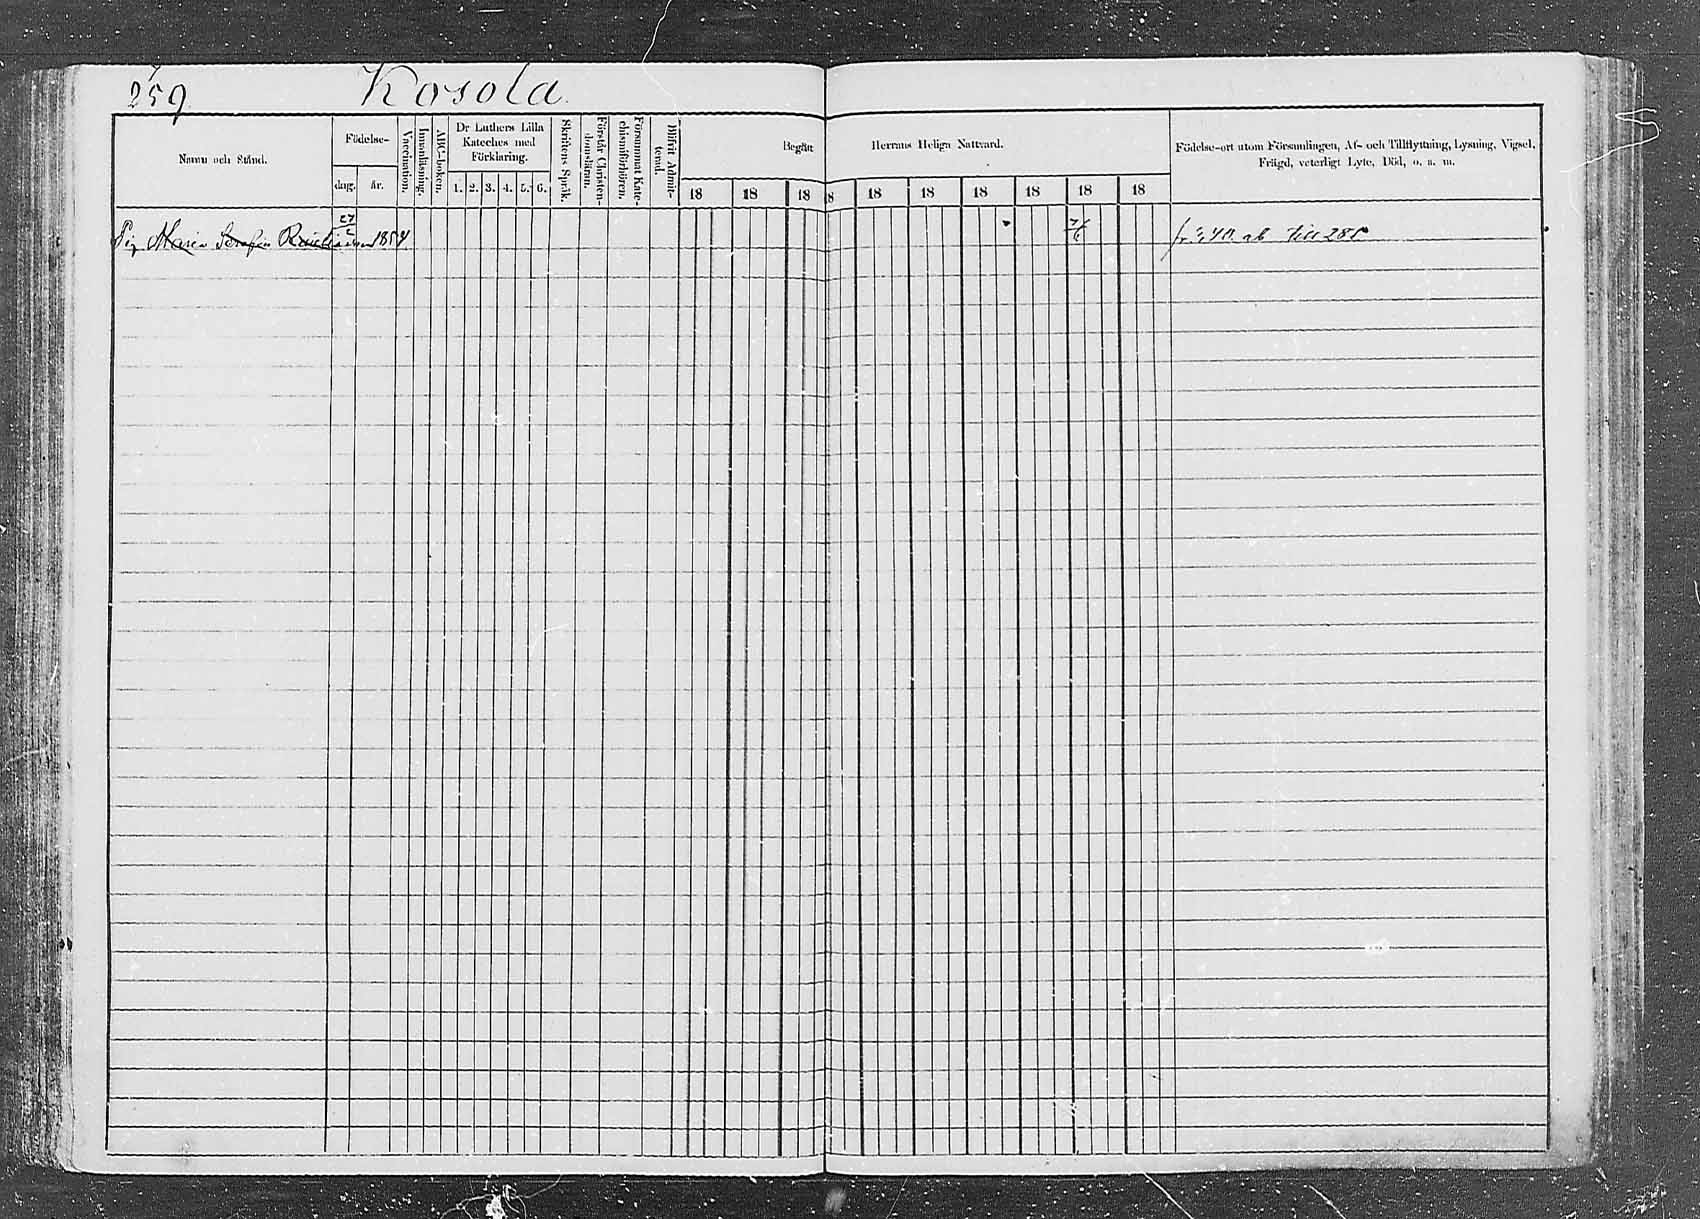 259. Kosola.
Namn och Stånd.
Födelse-
dag. år.
Vaccination.
Innanläsning.
ABC-boken.
Dr Luthers Lilla
Kateches med
Förklaring.
1. 2. 3. 4. 5. 6.
Skriftens Språk.
Förstår Christen-
domsläran.
Försummat Kate-
chismiförhören.
Blifvit Admit-
terad.
Begått Herrans Heliga Nattvard.
18 18 18 18 18 18 18 18 18 18
Födelse-ort utom Församlingen, Af- och Tillflyttning, Lysning, Vigsel,
Frägd, veterligt Lyte, Död, o. s. m.
Pig. Maria Serafia 27/2 1854 7/6 till 281